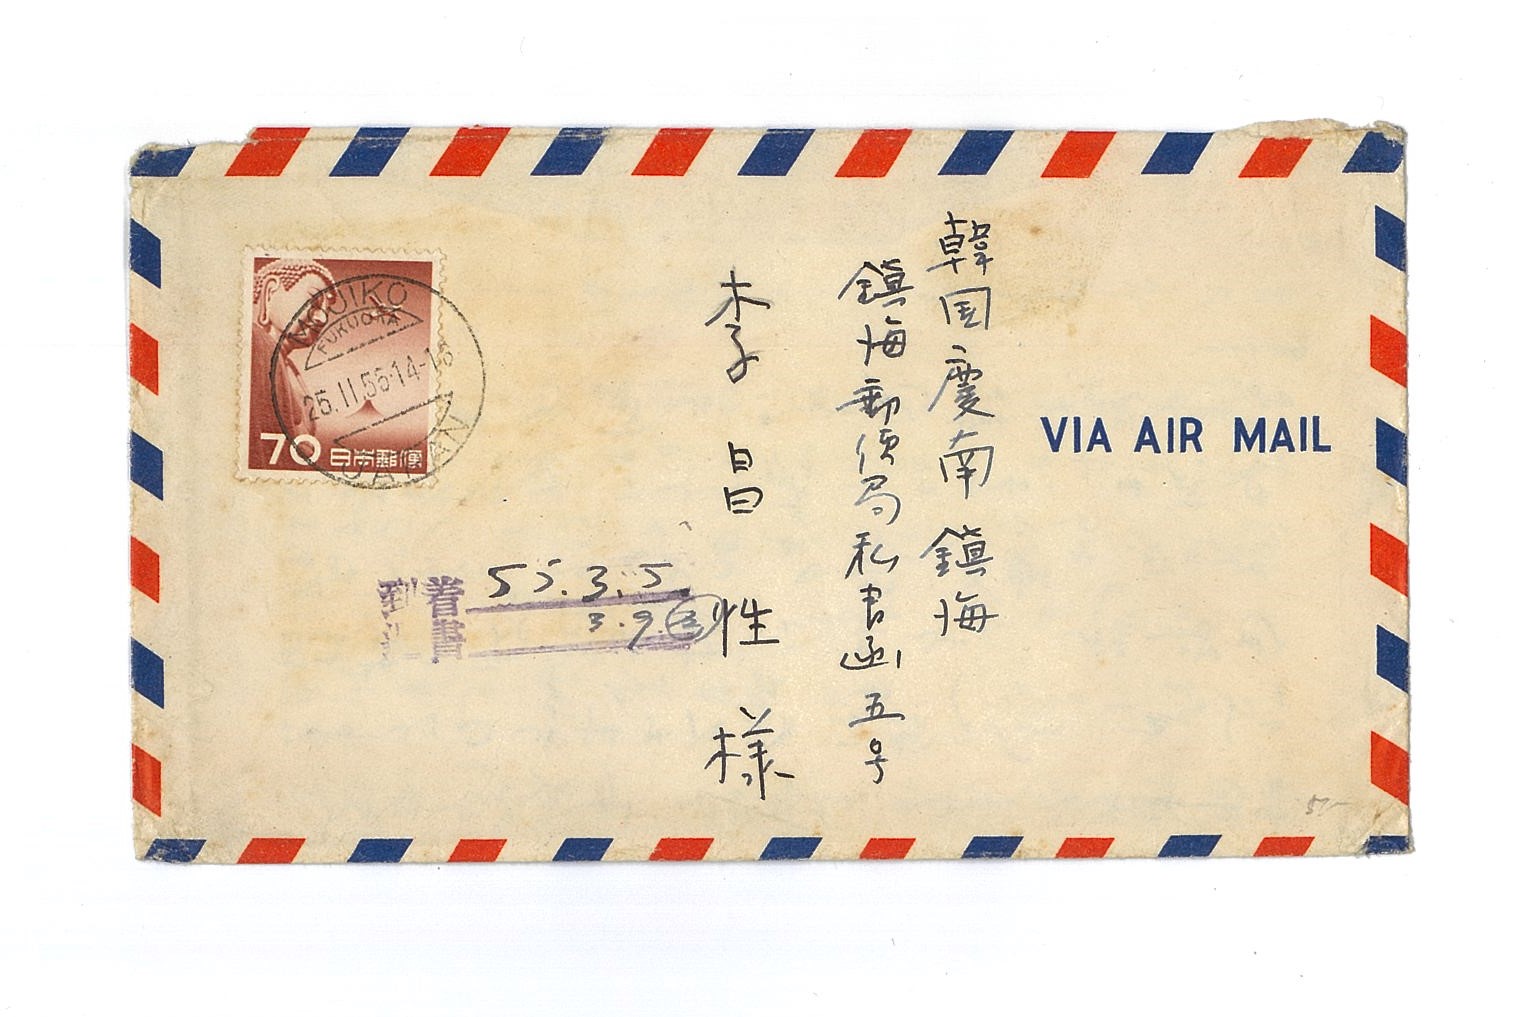 韓国慶南鎮海
鎮海郵便局私書函五号
李昌性様
VIA AIR MAIL
70 日本郵便
MOJIKO
FUKUOKA
25.II.55.14-16
JAPAN
到着
書
55.3.5
3.9.